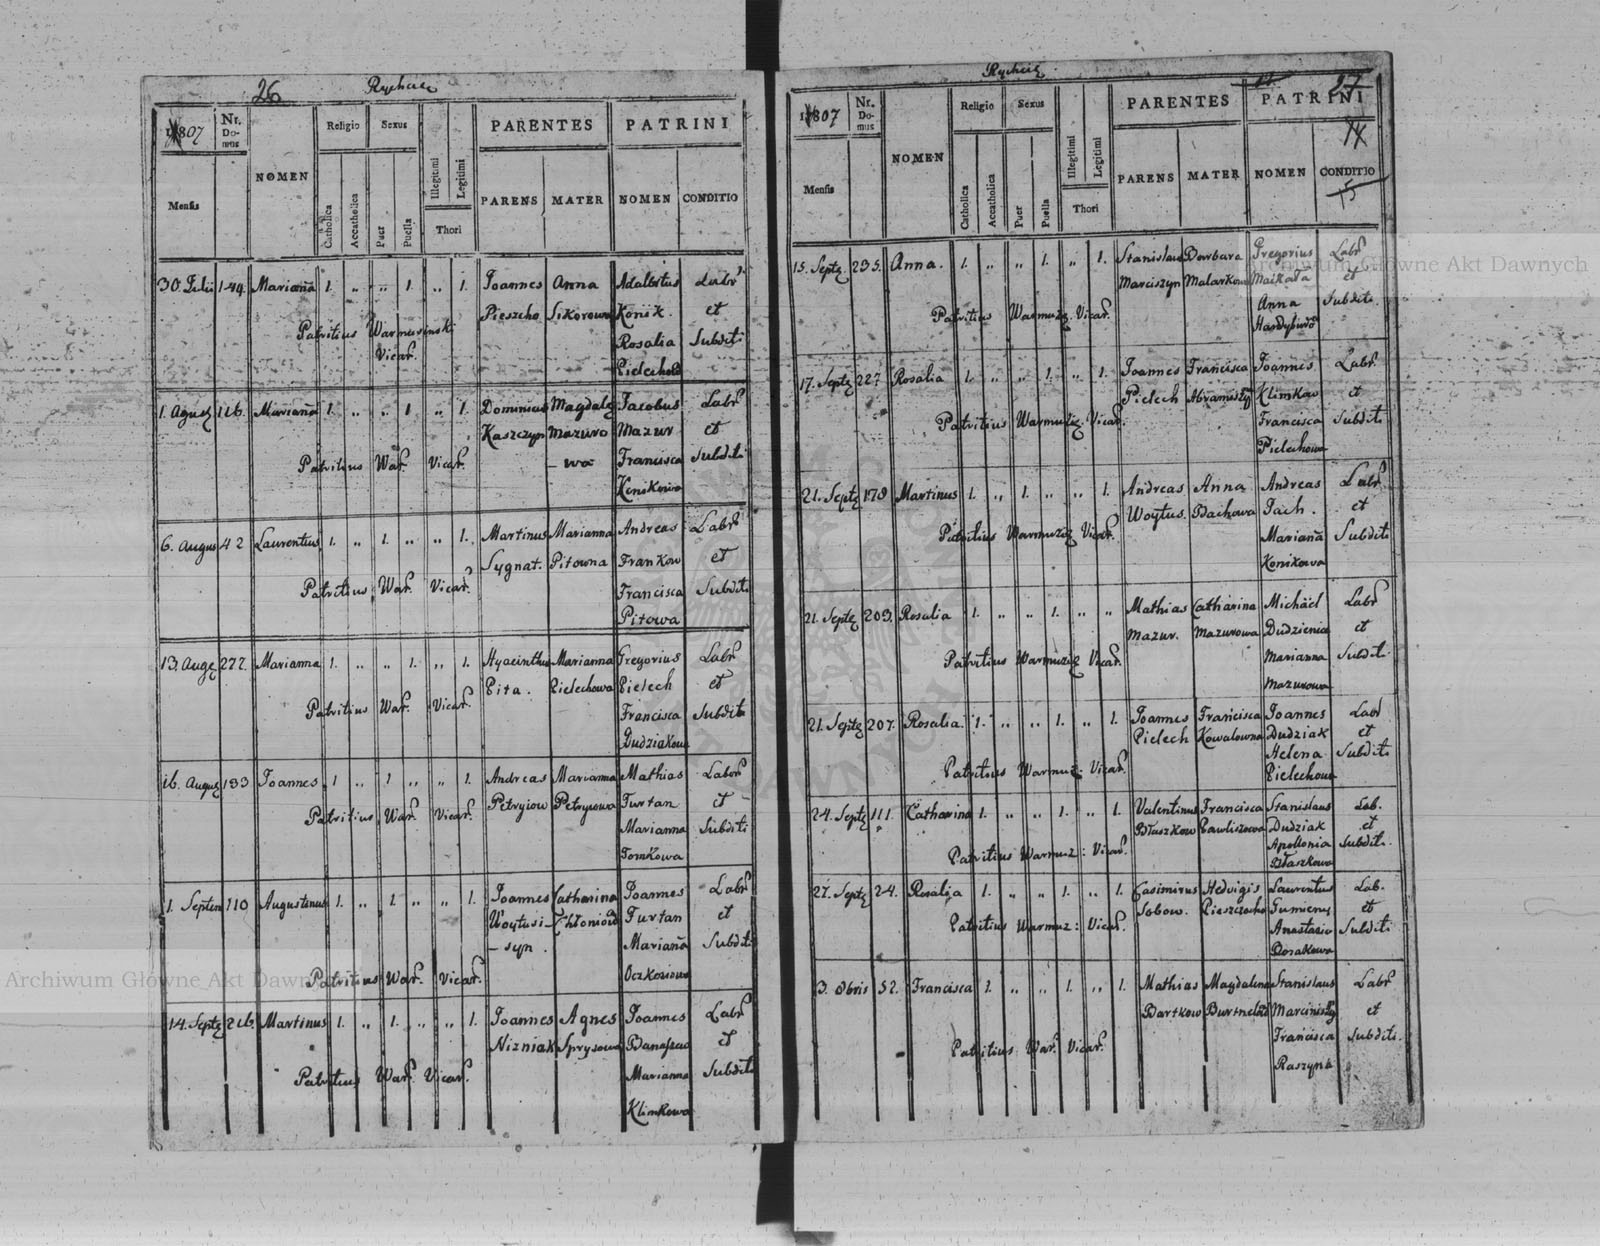 26
1807
Nr. Domus
NOMEN
Religio
Sexus
Illegitimi
Legitimi
PARENTES
PATRINI
Mensis
Catholica
Accatholica
Puer
Puella
Thori
PARENS
MATER
NOMEN
CONDITIO
30. Julii 144 Mariana 1. „ „ 1 „ 1. Joannes Anna Adalbertus Labr
Pieszcho Sikorowna Konik. et
Patritius Vicar.
Rosalia Subditi
1. 116. Mariana 1. „ „ 1 „ 1. Dominicus Magdale Jacobus Labr
Kaszczyn Mazuro Mazur et
Patritius War. Vicar. - wa Francisca Subditi
Konikowa
6. August 42 Laurentius 1. „ 1. „ „ 1. Martinus Marianna Andreas Labr
Sygnat. Pitowna Frankow et
Patritius War. Vicar. Francisca Subditi
Pitowa
13. Aug 272. Marianna 1. „ „ 1. „ 1. Hyacinthus Marianna Gregorius Labr
Pita. Pielechowa Pielech et
Patritius War. Vicar. Francisca Subditi
Dudziakowa
16. 193 Joannes 1 „ 1 „ „ 1. Andreas Marianna Mathias Labor
Petryiow Petryiowa Furtan et
Patritius War. Vicar. Marianna Subditi
Tomkowa
1. Septem 110 Augustinus 1. „ 1. „ „ 1. Joannes Catharina Joannes Labr
Woytusi- Furtan et
- syn. Mariana Subditi
Patritius War. Vicar.
14. Sept 216. Martinus 1. „ 1. „ „ 1. Joannes Agnes Joannes Labr
Nizniak Sprysowa et
Patritius War. Vicar. Marianna Subditi
Klimkowa
27
1807
Nr. Domus
NOMEN
Religio
Sexus
Illegitimi
Legitimi
PARENTES
PATRINI
Mensis
Catholica
Accatholica
Puer
Puella
Thori
PARENS
MATER
NOMEN
CONDITIO
15
15. Sept 235. Anna. 1. „ „ 1. „ 1. Stanislaus Barbara Gregorius Labr
Marciszyn Malarkowa et
Patritius Vicar. Anna Subditi.
17. Sept 227. Rosalia 1. „ „ 1. „ 1. Joannes Francisca Joannes Labr
Pielech Klimkow et
Patritius Vicar. Francisca Subditi
Pielechowa
21. Sept 178 Martinus 1. „ 1. „ „ 1. Andreas Anna Andreas Labr
Woytus. Bachowa Pach. et
Patritius Vicar. Mariana Subditi
Konikowa
21. Sept 203. Rosalia 1. „ „ 1. „ „ Mathias Catharina Michael Labr
Mazur. Mazurowa et
Patritius Vicar. Marianna Subditi
Mazurowa
21. Sept 207. Rosalia. 1. „ „ 1. „ 1. Joannes Francisca Joannes Labr
Pielech Kowalowna Dudziak et
Helena Subditi
Patritius Warmuz: Vicar. Pielechowa
24. Sept 111. Catharina 1. „ „ 1. „ 1. Valentinus Francisca Stanislaus Lab.
Błaszkow Pawliszowa Dudziak et
Apollonia Subditi.
Patritius Warmuz: Vicar. Błaszkowa
27. Sept 24. Rosalia 1. „ „ 1. „ 1. Casimirus Hedvigis Laurentius Lab.
Sobow. et
Patritius Warmuz: Vicar. Anastasia Subditi
3. 8bris 52. Francisca 1. „ „ 1. „ 1. Mathias Magdalena Stanislaus Labr
Bartkow et
Patritius War. Vicar. Francisca Subditi.
Raszyna
Archiwum Główne Akt Dawnych
Archiwum Główne Akt Dawnych